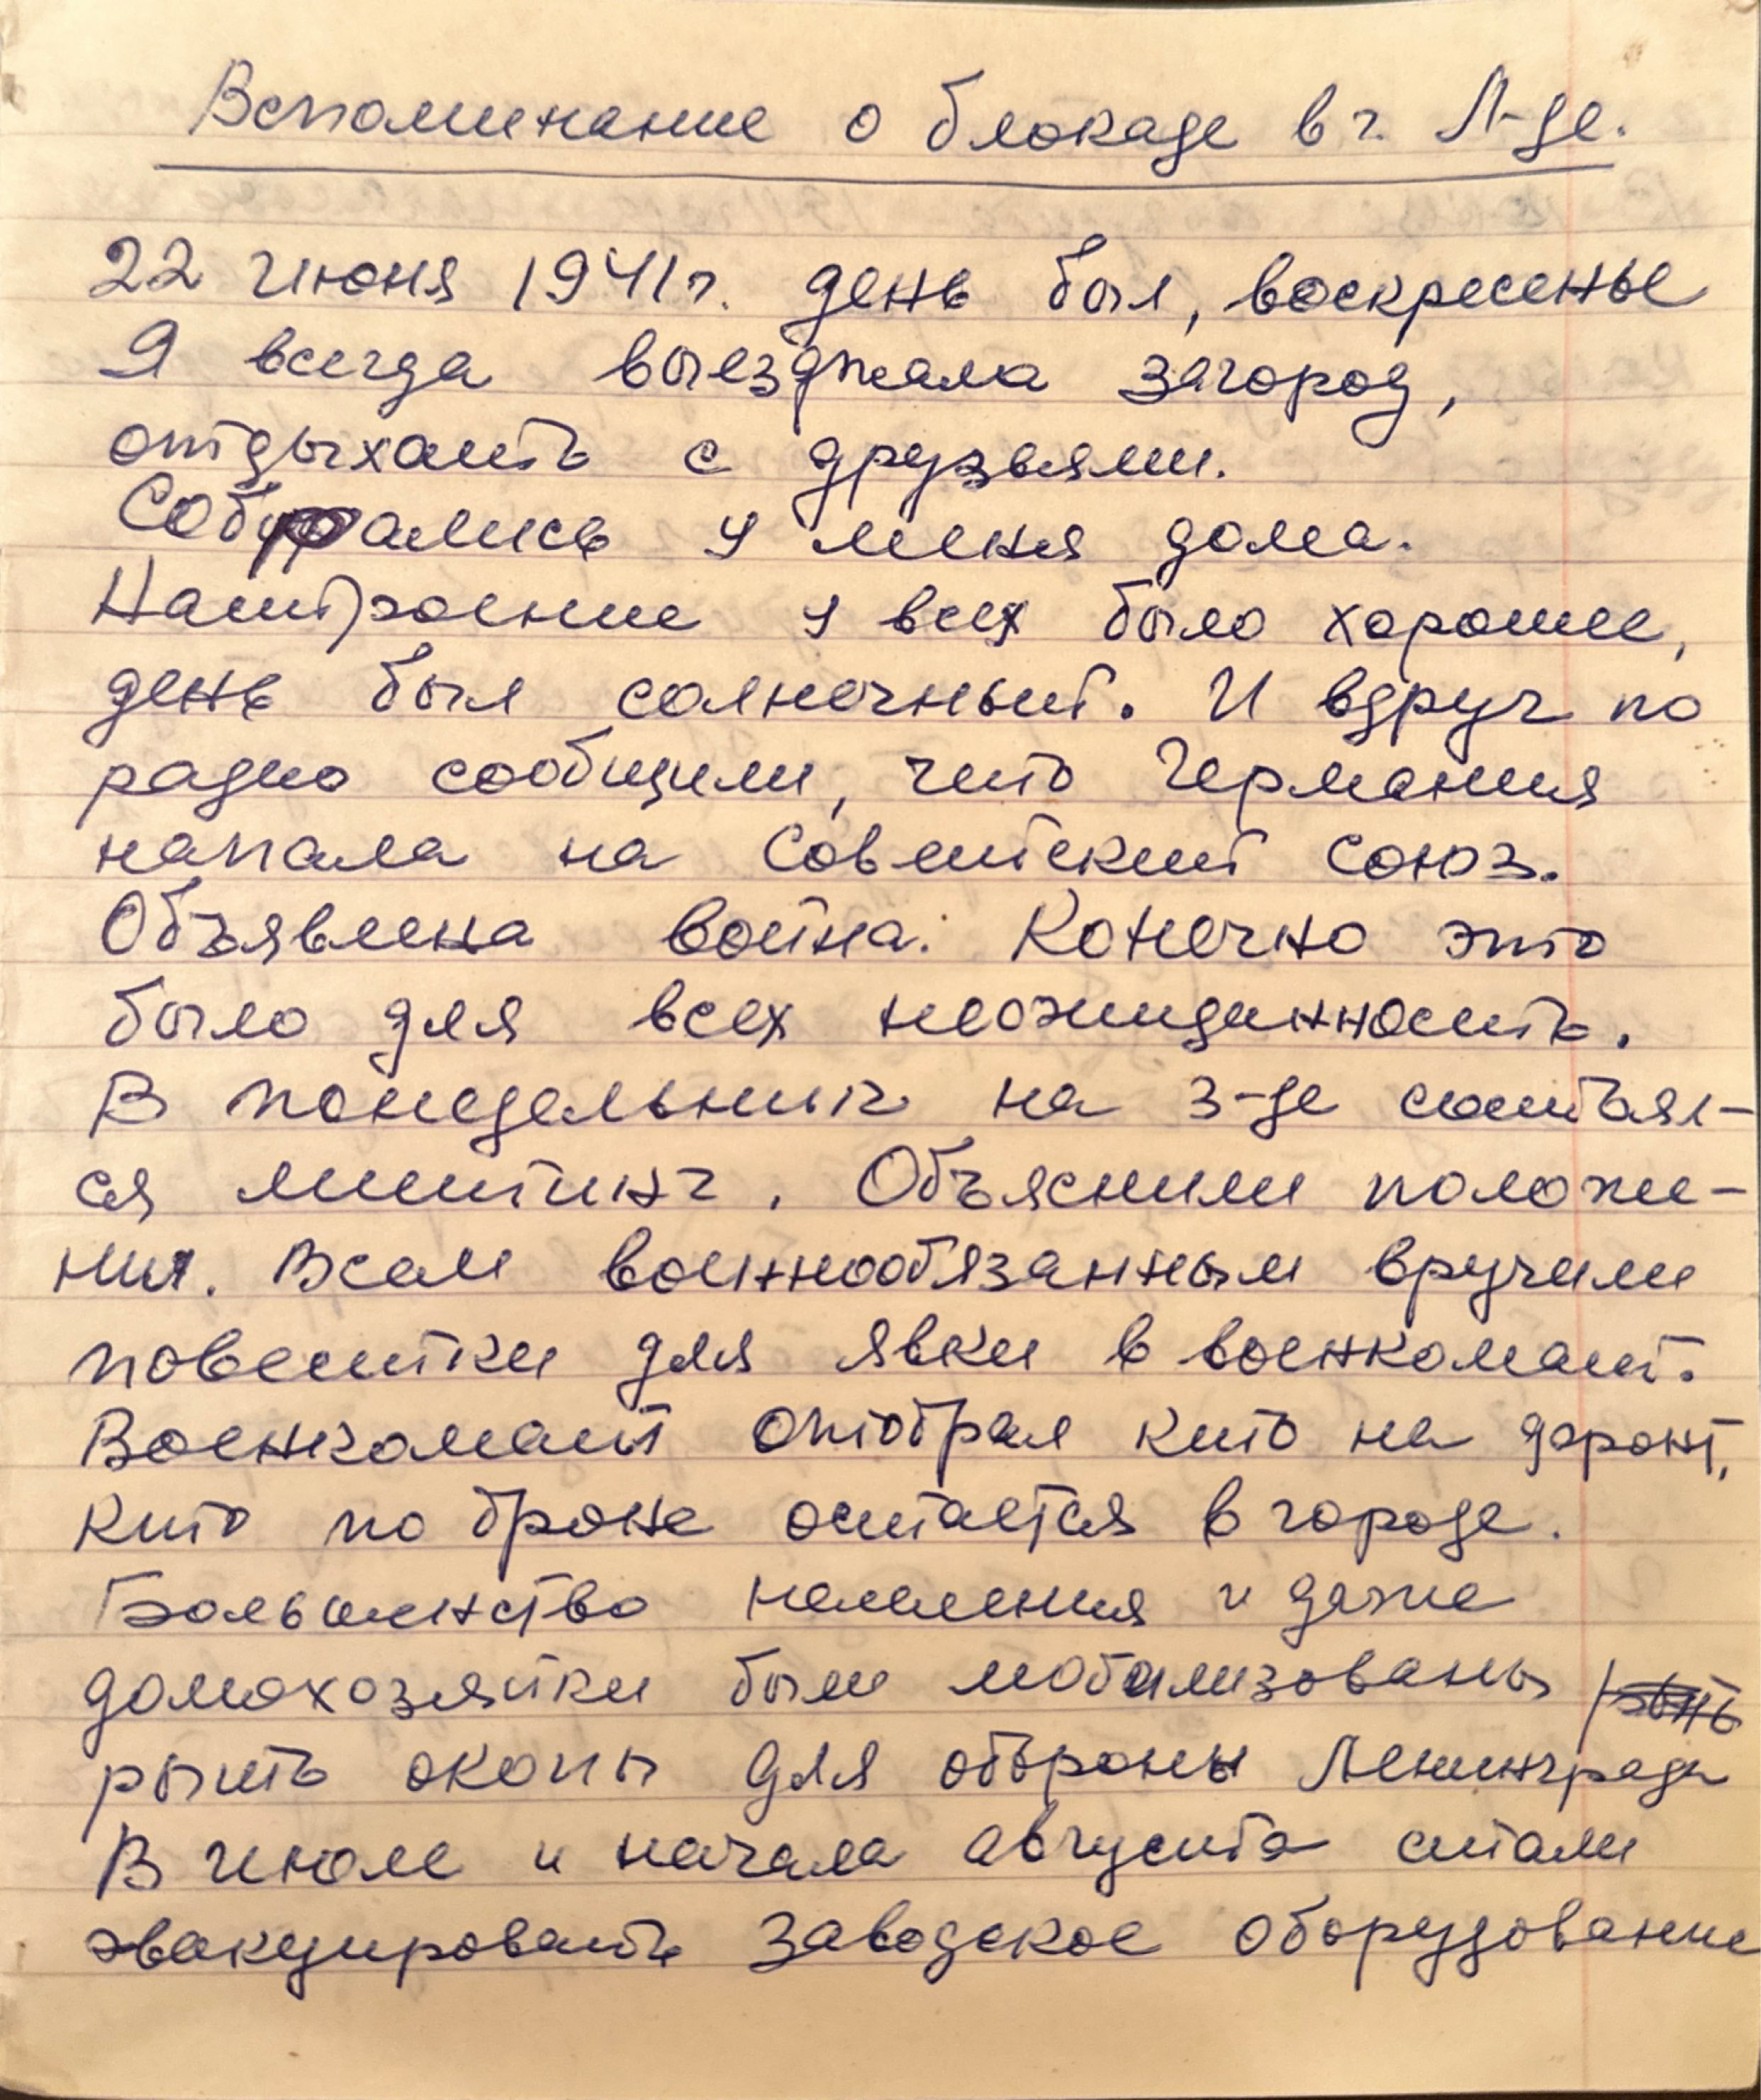 Вспоминание о блокаде в г. Л-де.
22 июня 1941г. день был, воскресенье
Я всегда выезджала загород,
отдыхать с друзьями.
Собирались у меня дома.
Настроение у всех было хорошее,
день был солнечный. И вдруг по
радио сообщили, что Германия
напала на Советский союз.
Объявлена война. Конечно это
было для всех неожиданность.
В понедельник на з-де состоял-
ся митинг. Объяснили положе-
ния. Всем военнообязанным вручили
повестки для явки в военкомат.
Военкомат отобрал кто на фронт,
кто по броне остается в городе.
Большинство населения и даже
домохозяйки были мобилизованы
рыть окопы для обороны Ленинграда
В июле и начала августа стали
эвакуировать заводское оборудование